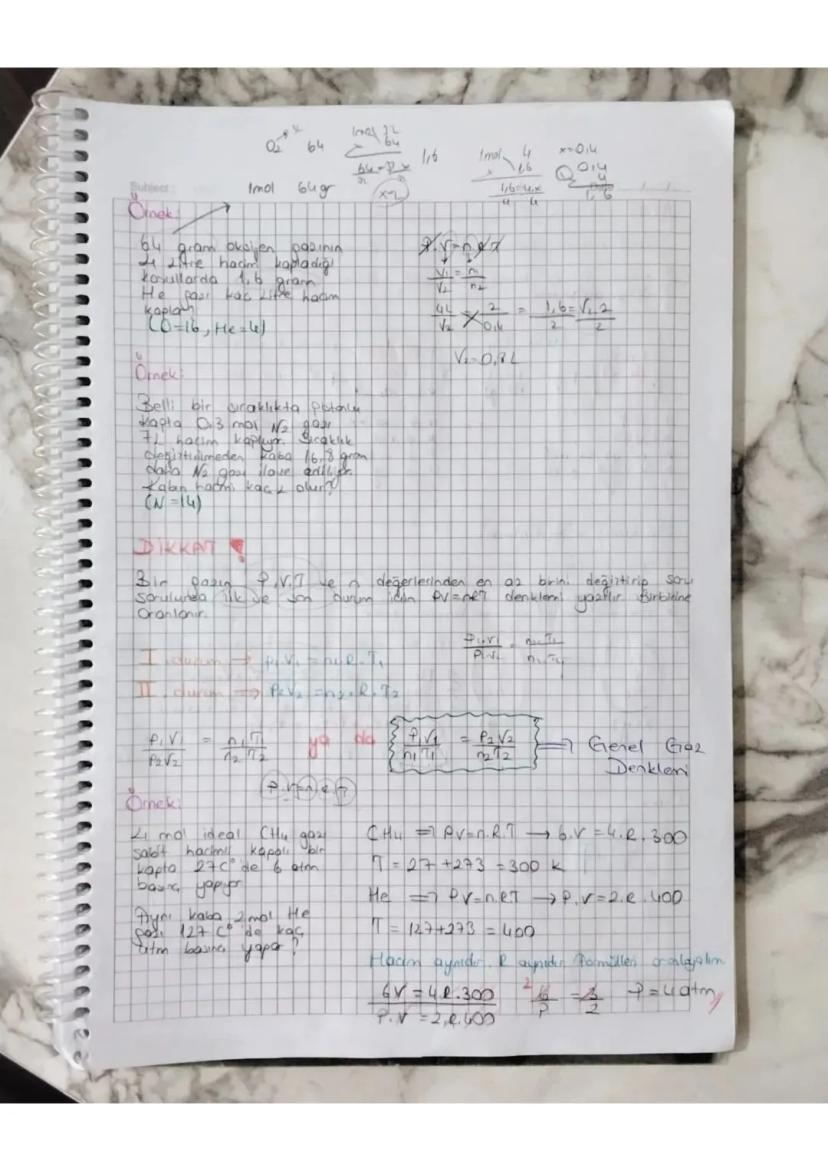 O₂ 64
1mol 32
64
1,6
1mol 4
1,6
x=0,4
0,4
4
1,6
x=2
1,6=4.x
Subject:
1mol 64gr
Örnek:
64 gram oksijen gazının
4 litre hacim kapladığı
koşullarda 1,6 gram
He gazı kaç litre hacim
kaplar
(O=16, He=4)
P.V=n.R.T
V₁/V₂ = n₁/n₂
4L/V₂ = 2/0,4 = 1,6/2 = V₂.2/2
V₂=0,8L
Örnek:
Belli bir sıcaklıkta pistonlu
kapta 0,3 mol N₂ gazı
7L hacim kaplıyor. Sıcaklık
değiştirilmeden kaba 16,8 gram
daha N₂ gazı ilave ediliyor.
Kabın hacmi kaç L olur?
(N=14)
DİKKAT !
Bir gazın P,V,T ve n değerlerinden en az birini değiştirip soru
sorulursa ilk ve son durum için PV=nRT denklemi yazılır birbirine
oranlanır.
I. durum → P₁V₁=n₁.R.T₁
II. durum → P₂V₂=n₂.R.T₂
P₁V₁/P₂V₂ = n₁T₁/n₂T₂ ya da P₁V₁/n₁T₁ = P₂V₂/n₂T₂ ⇒ Genel Gaz
Denklemi
P.V=n.R.T
Örnek:
4 mol ideal CH₄ gazı
sabit hacimli kapalı bir
kapta 27C° de 6 atm
basınç yapıyor
Aynı kaba 2mol He
gazı 127 C° de kaç
atm basınç yapar?
CH₄ ⇒ PV=n.R.T → 6.V=4.R.300
T=27+273=300 K
He ⇒ PV=nRT → P.V=2.R.400
T=127+273=400
Hacim aynıdır, R aynıdır formülleri oranlayalım
6V=4.R.300
P.V=2.R.400
6/P = 3/2 P=4atm